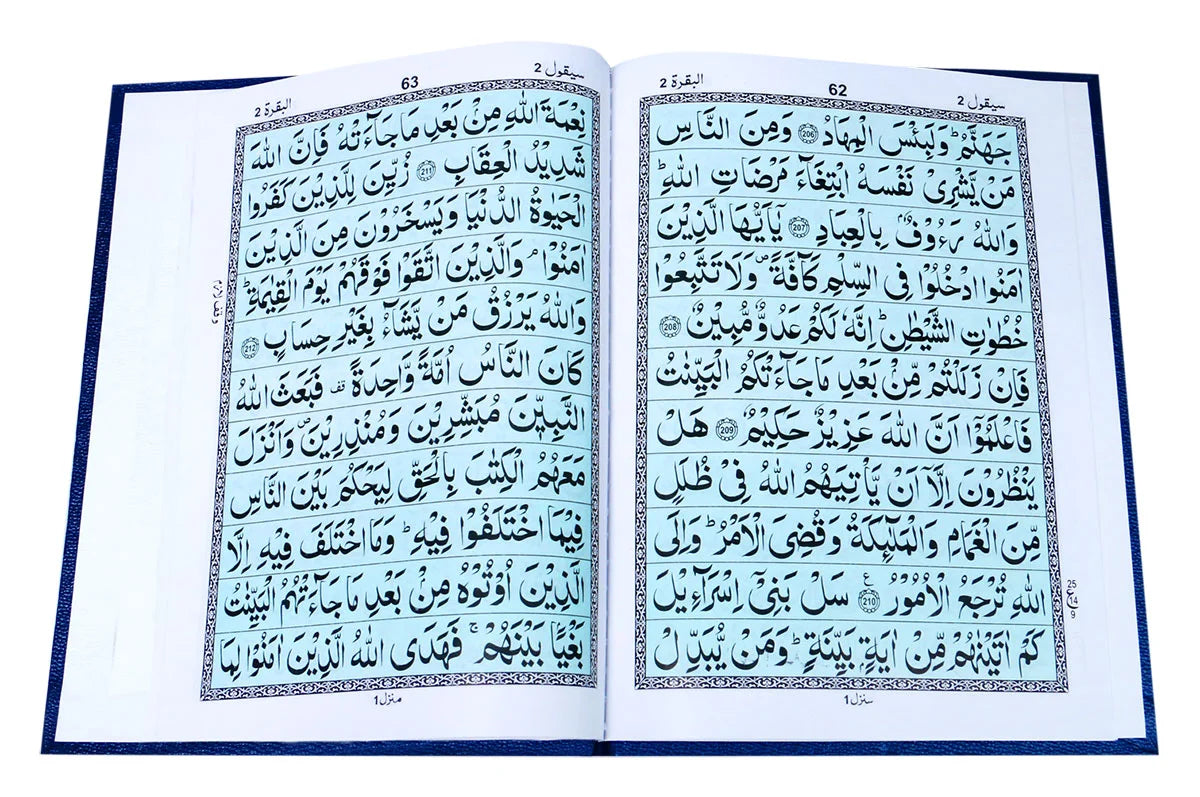 سيقول 2
62
البقرة 2
جَهَنَّمُ ؕ وَلَبِئْسَ الْمِهَادُ 206 وَمِنَ النَّاسِ
مَنْ يَّشْرِىْ نَفْسَهُ ابْتِغَآءَ مَرْضَاتِ اللّٰهِ ؕ
وَاللّٰهُ رَءُوْفٌۢ بِالْعِبَادِ 207 يٰۤاَيُّهَا الَّذِيْنَ
اٰمَنُوا ادْخُلُوْا فِى السِّلْمِ كَآفَّةً ۪ وَلَا تَتَّبِعُوْا
خُطُوٰتِ الشَّيْطٰنِ ؕ اِنَّهٗ لَكُمْ عَدُوٌّ مُّبِيْنٌ 208
فَاِنْ زَلَلْتُمْ مِّنْۢ بَعْدِ مَا جَآءَتْكُمُ الْبَيِّنٰتُ
فَاعْلَمُوْۤا اَنَّ اللّٰهَ عَزِيْزٌ حَكِيْمٌ 209 هَلْ
يَنْظُرُوْنَ اِلَّاۤ اَنْ يَّاْتِيَهُمُ اللّٰهُ فِىْ ظُلَلٍ
مِّنَ الْغَمَامِ وَالْمَلٰٓئِكَةُ وَقُضِىَ الْاَمْرُ ؕ وَاِلَى
اللّٰهِ تُرْجَعُ الْاُمُوْرُ 210 ع سَلْ بَنِىْۤ اِسْرَآءِيْلَ
كَمْ اٰتَيْنٰهُمْ مِّنْ اٰيَةٍۭ بَيِّنَةٍ ؕ وَمَنْ يُّبَدِّلْ
25
ع
14
9
منزل 1
63
سيقول 2
البقرة 2
نِعْمَةَ اللّٰهِ مِنْۢ بَعْدِ مَا جَآءَتْهُ فَاِنَّ اللّٰهَ
شَدِيْدُ الْعِقَابِ 211 زُيِّنَ لِلَّذِيْنَ كَفَرُوا
الْحَيٰوةُ الدُّنْيَا وَيَسْخَرُوْنَ مِنَ الَّذِيْنَ
اٰمَنُوْا ۘ وَالَّذِيْنَ اتَّقَوْا فَوْقَهُمْ يَوْمَ الْقِيٰمَةِ ؕ
وَاللّٰهُ يَرْزُقُ مَنْ يَّشَآءُ بِغَيْرِ حِسَابٍ 212
كَانَ النَّاسُ اُمَّةً وَّاحِدَةً قف فَبَعَثَ اللّٰهُ
النَّبِيّٖنَ مُبَشِّرِيْنَ وَمُنْذِرِيْنَ ۪ وَاَنْزَلَ
مَعَهُمُ الْكِتٰبَ بِالْحَقِّ لِيَحْكُمَ بَيْنَ النَّاسِ
فِيْمَا اخْتَلَفُوْا فِيْهِ ؕ وَمَا اخْتَلَفَ فِيْهِ اِلَّا
الَّذِيْنَ اُوْتُوْهُ مِنْۢ بَعْدِ مَا جَآءَتْهُمُ الْبَيِّنٰتُ
بَغْيًاۢ بَيْنَهُمْ ۚ فَهَدَى اللّٰهُ الَّذِيْنَ اٰمَنُوْا لِمَا
منزل 1